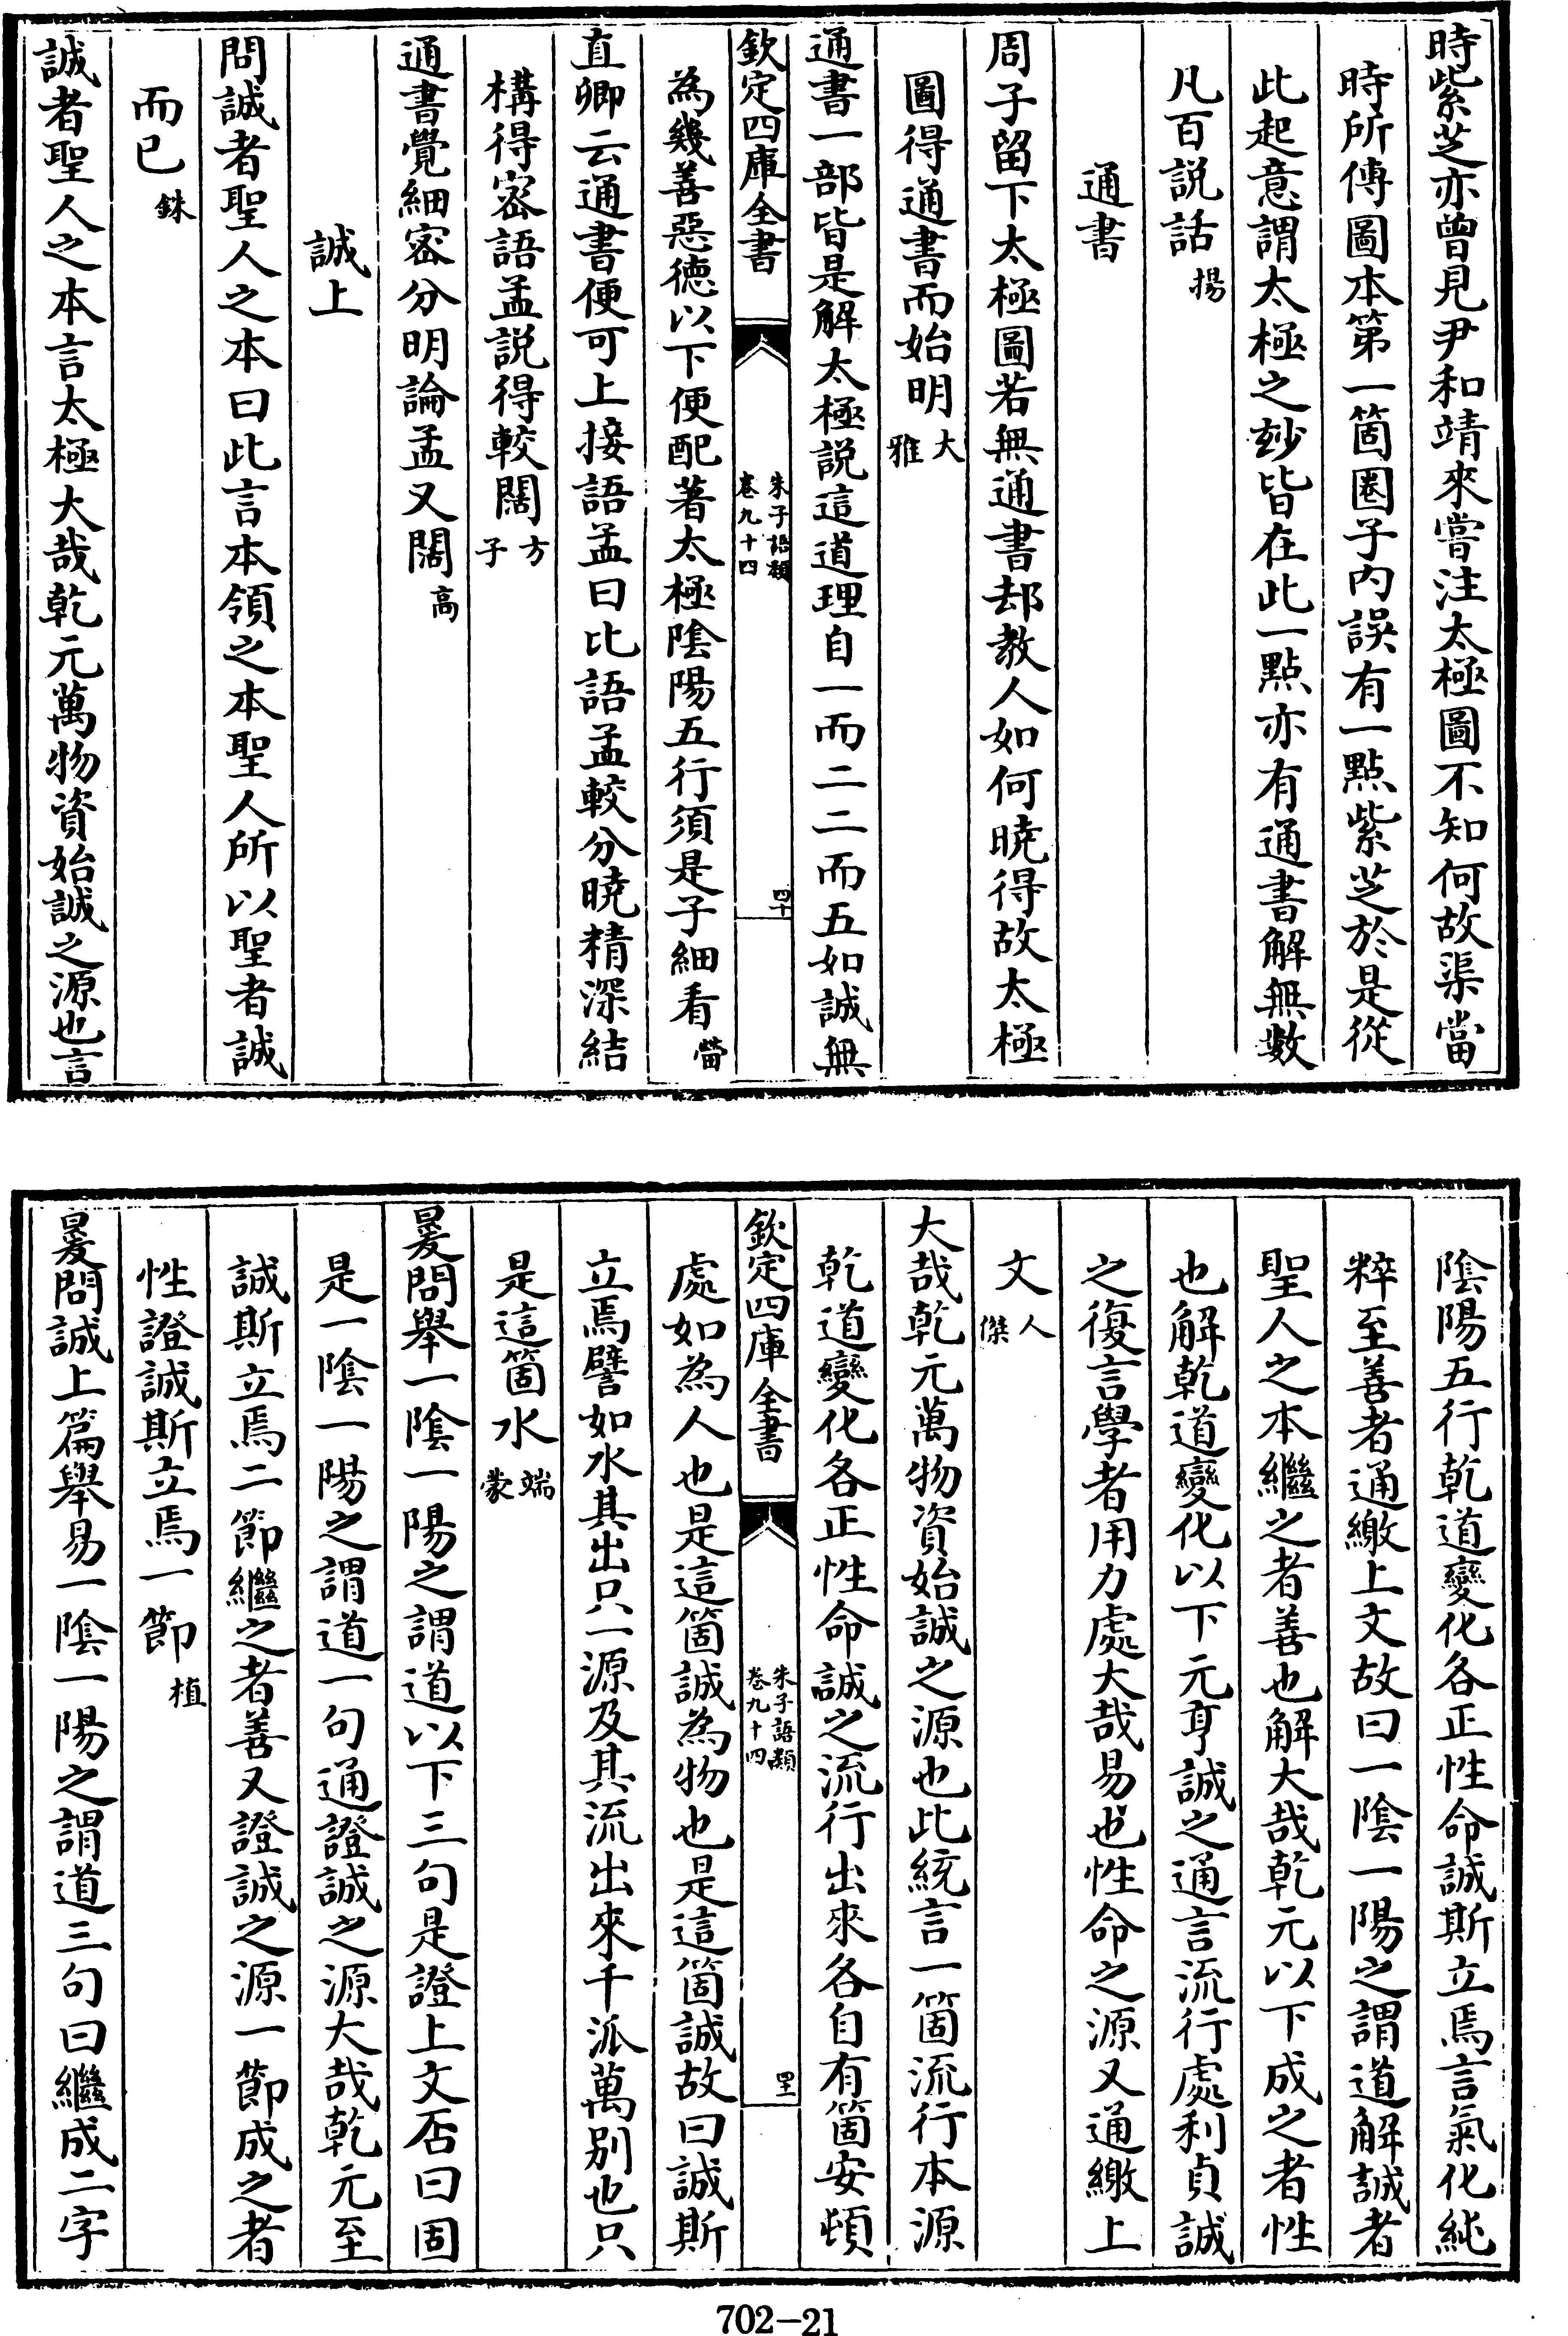 時紫芝亦曾見尹和靖來嘗注太極圖不知何故渠當
時所傳圖本第一箇圈子内誤有一點紫芝於是從
此起意謂太極之玅皆在此一點亦有通書解無數
凡百説話揚
通書
周子留下太極圖若無通書却教人如何曉得故太極
圖得通書而始明大雅
通書一部皆是解太極説這道理自一而二二而五如誠無
欽定四庫全書
朱子語類
卷九十四
四十
為幾善惡德以下便配著太極陰陽五行須是子細看㽦
直卿云通書便可上接語孟曰比語孟較分曉精深結
構得宻語孟説得較闊方子
通書覺細宻分明論孟又闊高
誠上
問誠者聖人之本曰此言本領之本聖人所以聖者誠
而已銖
誠者聖人之本言太極大哉乾元萬物資始誠之源也言
陰陽五行乾道變化各正性命誠斯立焉言氣化純
粹至善者通繳上文故曰一陰一陽之謂道解誠者
聖人之本繼之者善也解大哉乾元以下成之者性
也解乾道變化以下元亨誠之通言流行處利貞誠
之復言學者用力處大哉易也性命之源又通繳上
文人傑
大哉乾元萬物資始誠之源也此統言一箇流行本源
乾道變化各正性命誠之流行出來各自有箇安頓
欽定四庫全書
朱子語類
卷九十四
四十一
處如為人也是這箇誠為物也是這箇誠故曰誠斯
立焉譬如水其出只一源及其流出來千派萬别也只
是這箇水端蒙
㬊問舉一陰一陽之謂道以下三句是證上文否曰固
是一陰一陽之謂道一句通證誠之源大哉乾元至
誠斯立焉二節繼之者善又證誠之源一節成之者
性證誠斯立焉一節植
㬊問誠上篇舉易一陰一陽之謂道三句曰繼成二字
702-21